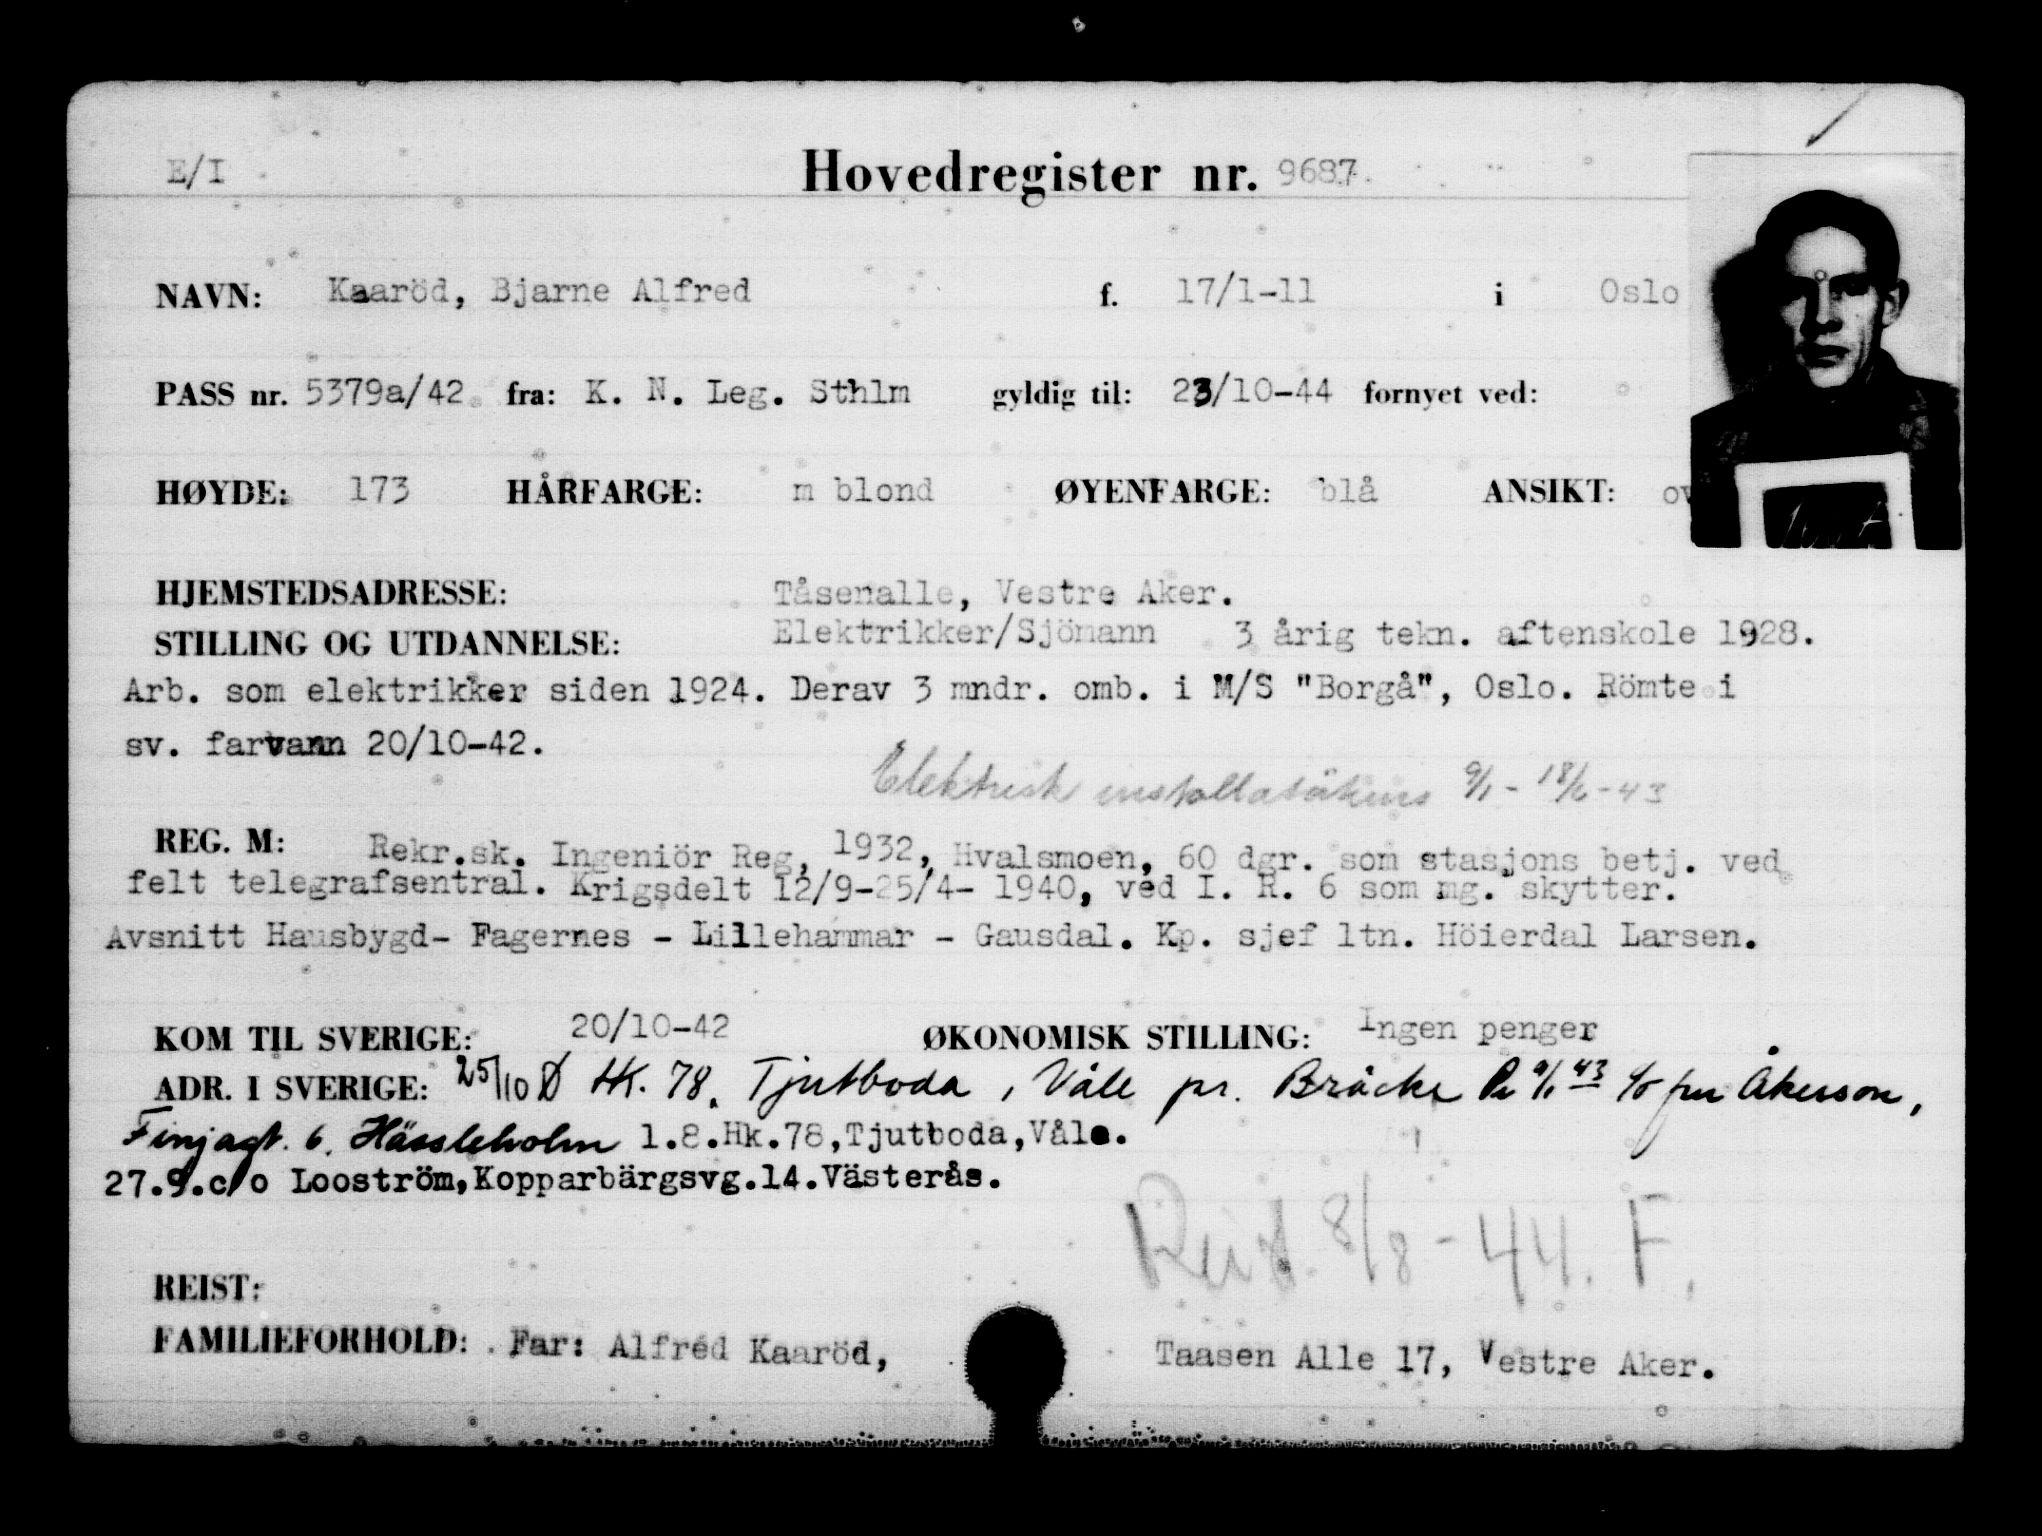 E/I Hovedregister nr. 9687.
NAVN: Kaaröd, Bjarne Alfred f. 17/1-11 i Oslo
PASS nr. 5379a/42 fra: K. N. Leg. Sthlm gyldig til: 23/10-44 fornyet ved:
HØYDE: 173 HÅRFARGE: m blond ØYENFARGE: blå ANSIKT: ov
HJEMSTEDSADRESSE: Tåsenalle, Vestre Aker.
STILLING OG UTDANNELSE: Elektrikker/Sjömann 3 årig tekn. aftenskole 1928.
Arb. som elektrikker siden 1924. Derav 3 mndr. omb. i M/S "Borgå", Oslo. Römte i
sv. farvann 20/10-42.
Elektrisk 9/1 - 18/6 - 43
REG. M: Rekr.sk. Ingeniör Reg, 1932, Hvalsmoen, 60 dgr. som stasjons betj. ved
felt telegrafsentral. Krigsdelt 12/9-25/4- 1940, ved I. R. 6 som mg. skytter.
Avsnitt Hausbygd- Fagernes - Lillehammar - Gausdal. Kp. sjef ltn. Höierdal Larsen.
KOM TIL SVERIGE: 20/10-42 ØKONOMISK STILLING: Ingen penger
ADR. I SVERIGE: 25/10 HK. 78, Tjutboda, Våle pr. Bräcke 9/1 43 c/o fru Åkesson,
Finjagt. 6. Hässleholm 1.8.Hk.78,Tjutboda,Våle.
27.9.c/o Looström,Kopparbärgsvg.14.Västerås.
Reist 8/8-44. F.
REIST:
FAMILIEFORHOLD: Far: Alfred Kaaröd, Taasen Alle 17, Vestre Aker.